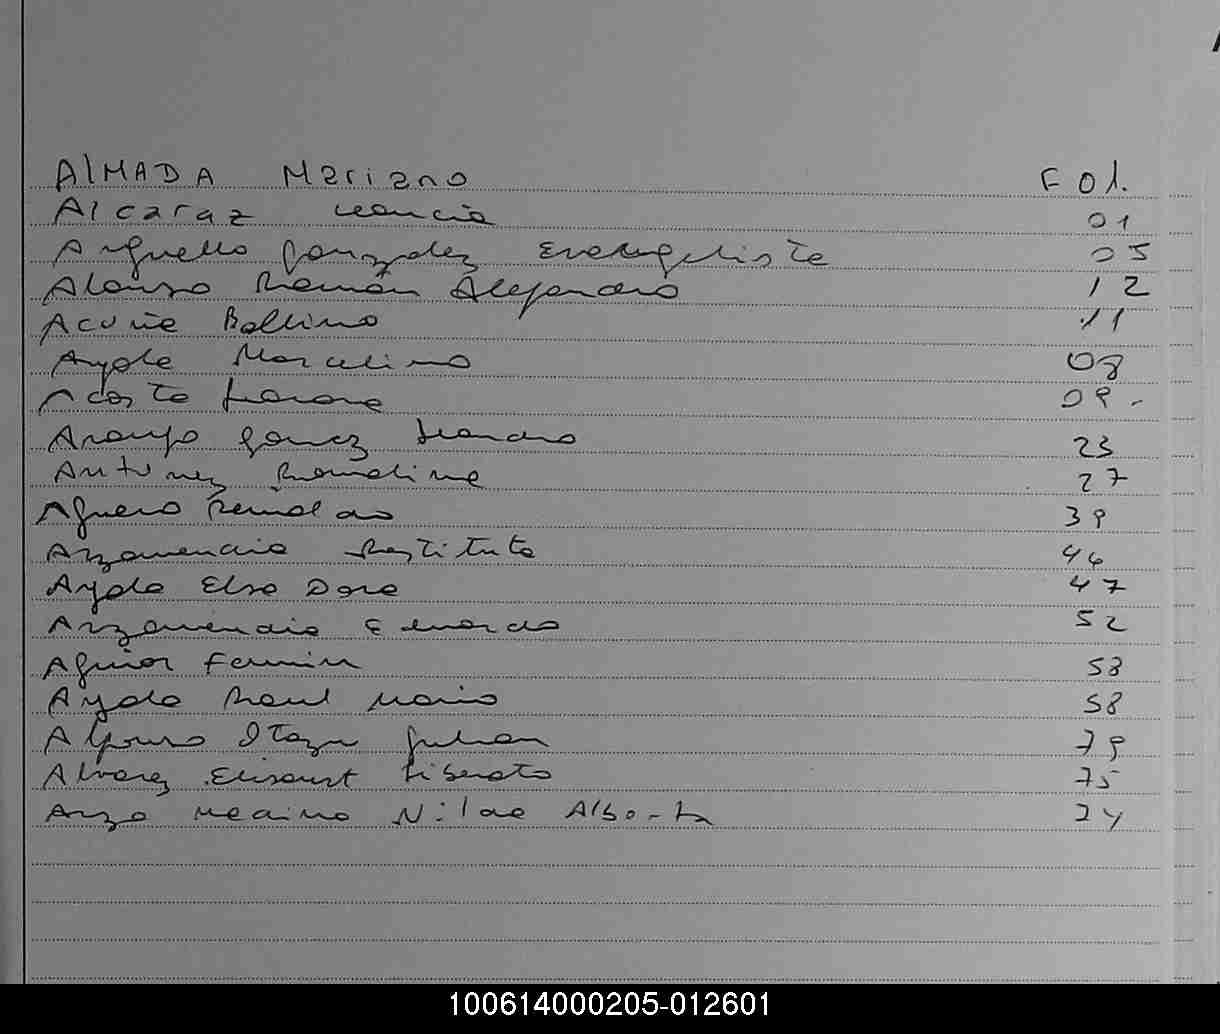 AlMADA Mariano F 01.
Alcaraz 01
Arguello Gonzalez Evangelista 05
Alonso Ramón Alejandro 12
Acuña Balbino 11
Ayala Marcelino 08
Acosta 09 -
Araujo Gomez Leandro 23
Antunez Romelina 27
Aguero Reinaldo 39
Arzamendia Restituta 46
Ayala Elsa Dora 47
Arzamendia Eduardo 52
Aguiar Fermin 53
Ayala Raul Mario 58
Alfonso Itazu Julian 79
Alvarez Liberato 75
Arzo Medina Nilda Alberta 24
100614000205-012601